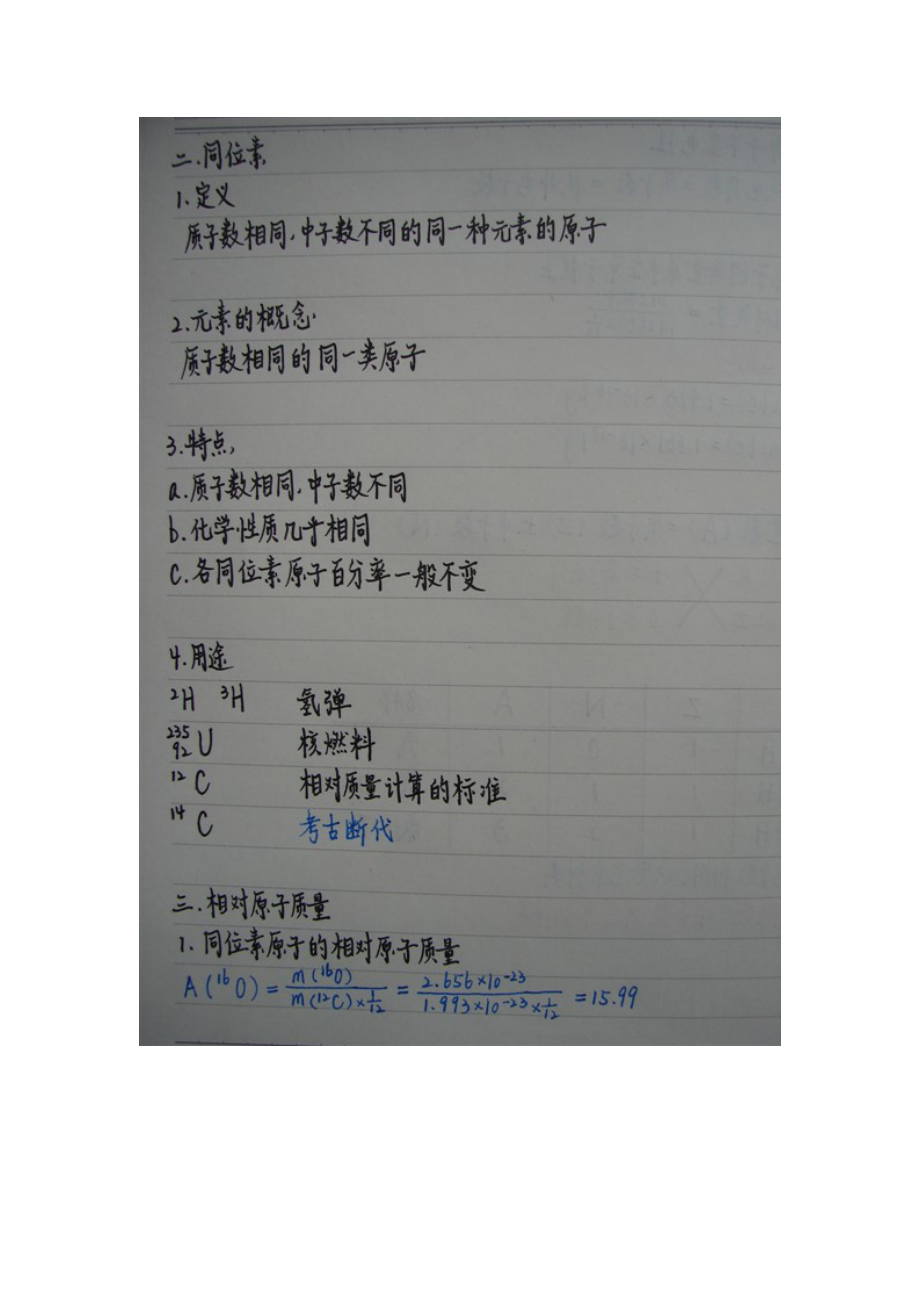 二.同位素
1.定义
质子数相同,中子数不同的同一种元素的原子
2.元素的概念.
质子数相同的同一类原子
3.特点,
a.质子数相同,中子数不同
b.化学性质几乎相同
c.各同位素原子百分率一般不变
4.用途
²H ³H 氢弹
²³⁵₉₂U 核燃料
¹²C 相对质量计算的标准
¹⁴C 考古断代
三.相对原子质量
1.同位素原子的相对原子质量
A(¹⁶O) = m(¹⁶O) / m(¹²C)×1/12 = 2.656×10⁻²³ / 1.993×10⁻²³×1/12 = 15.99